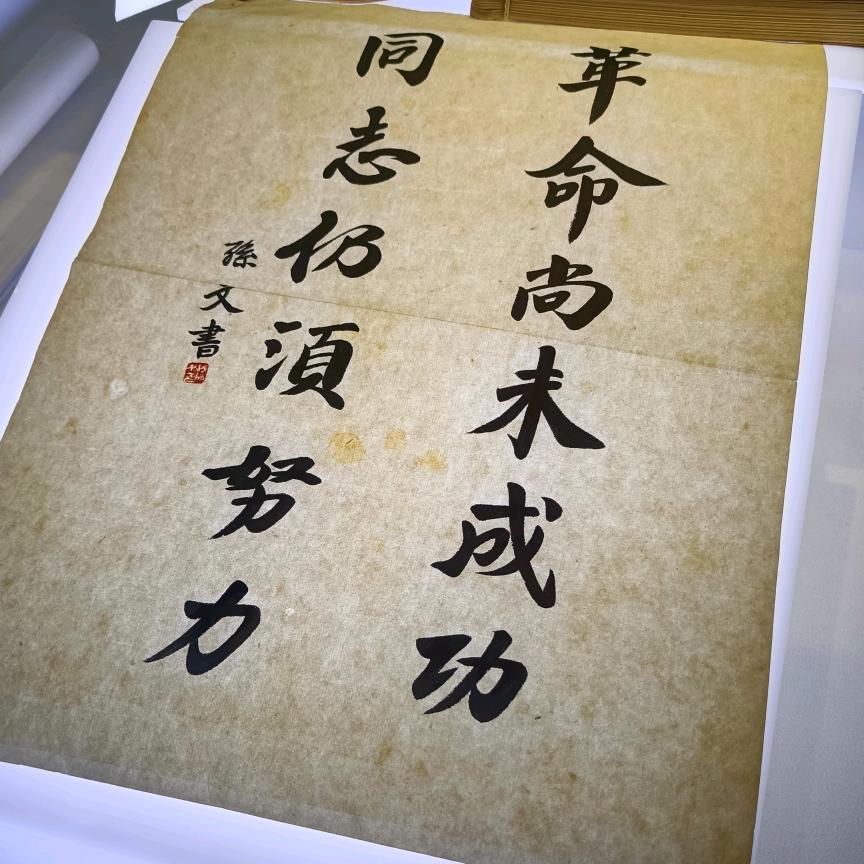 革命尚未成功
同志仍須努力
孫文書